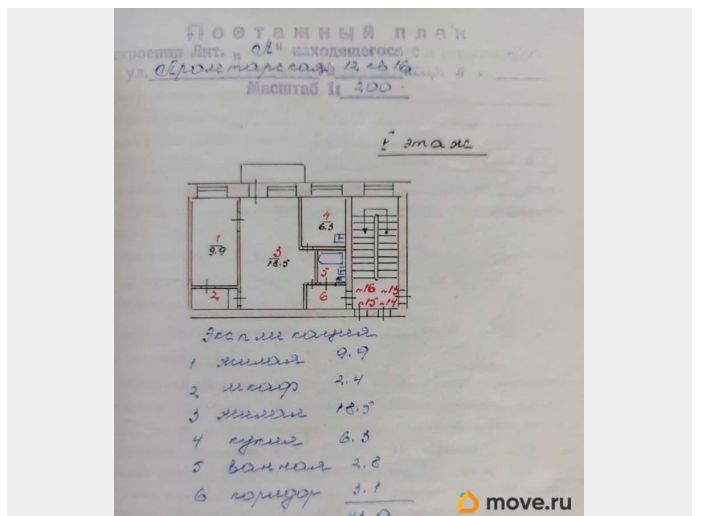 Поэтажный план
строения Лит. „А“ находящегося
ул. Пролетарская 12 кв 16
Масштаб 1: 200
этаж
1
9.9
2
3
18.5
4
6.3
5
6
16 13
15 14
Экспликация
1 жилая 9.9
2 шкаф 2.4
3 жилая 18.5
4 кухня 6.3
5 ванная 2.8
6 коридор 3.1
move.ru